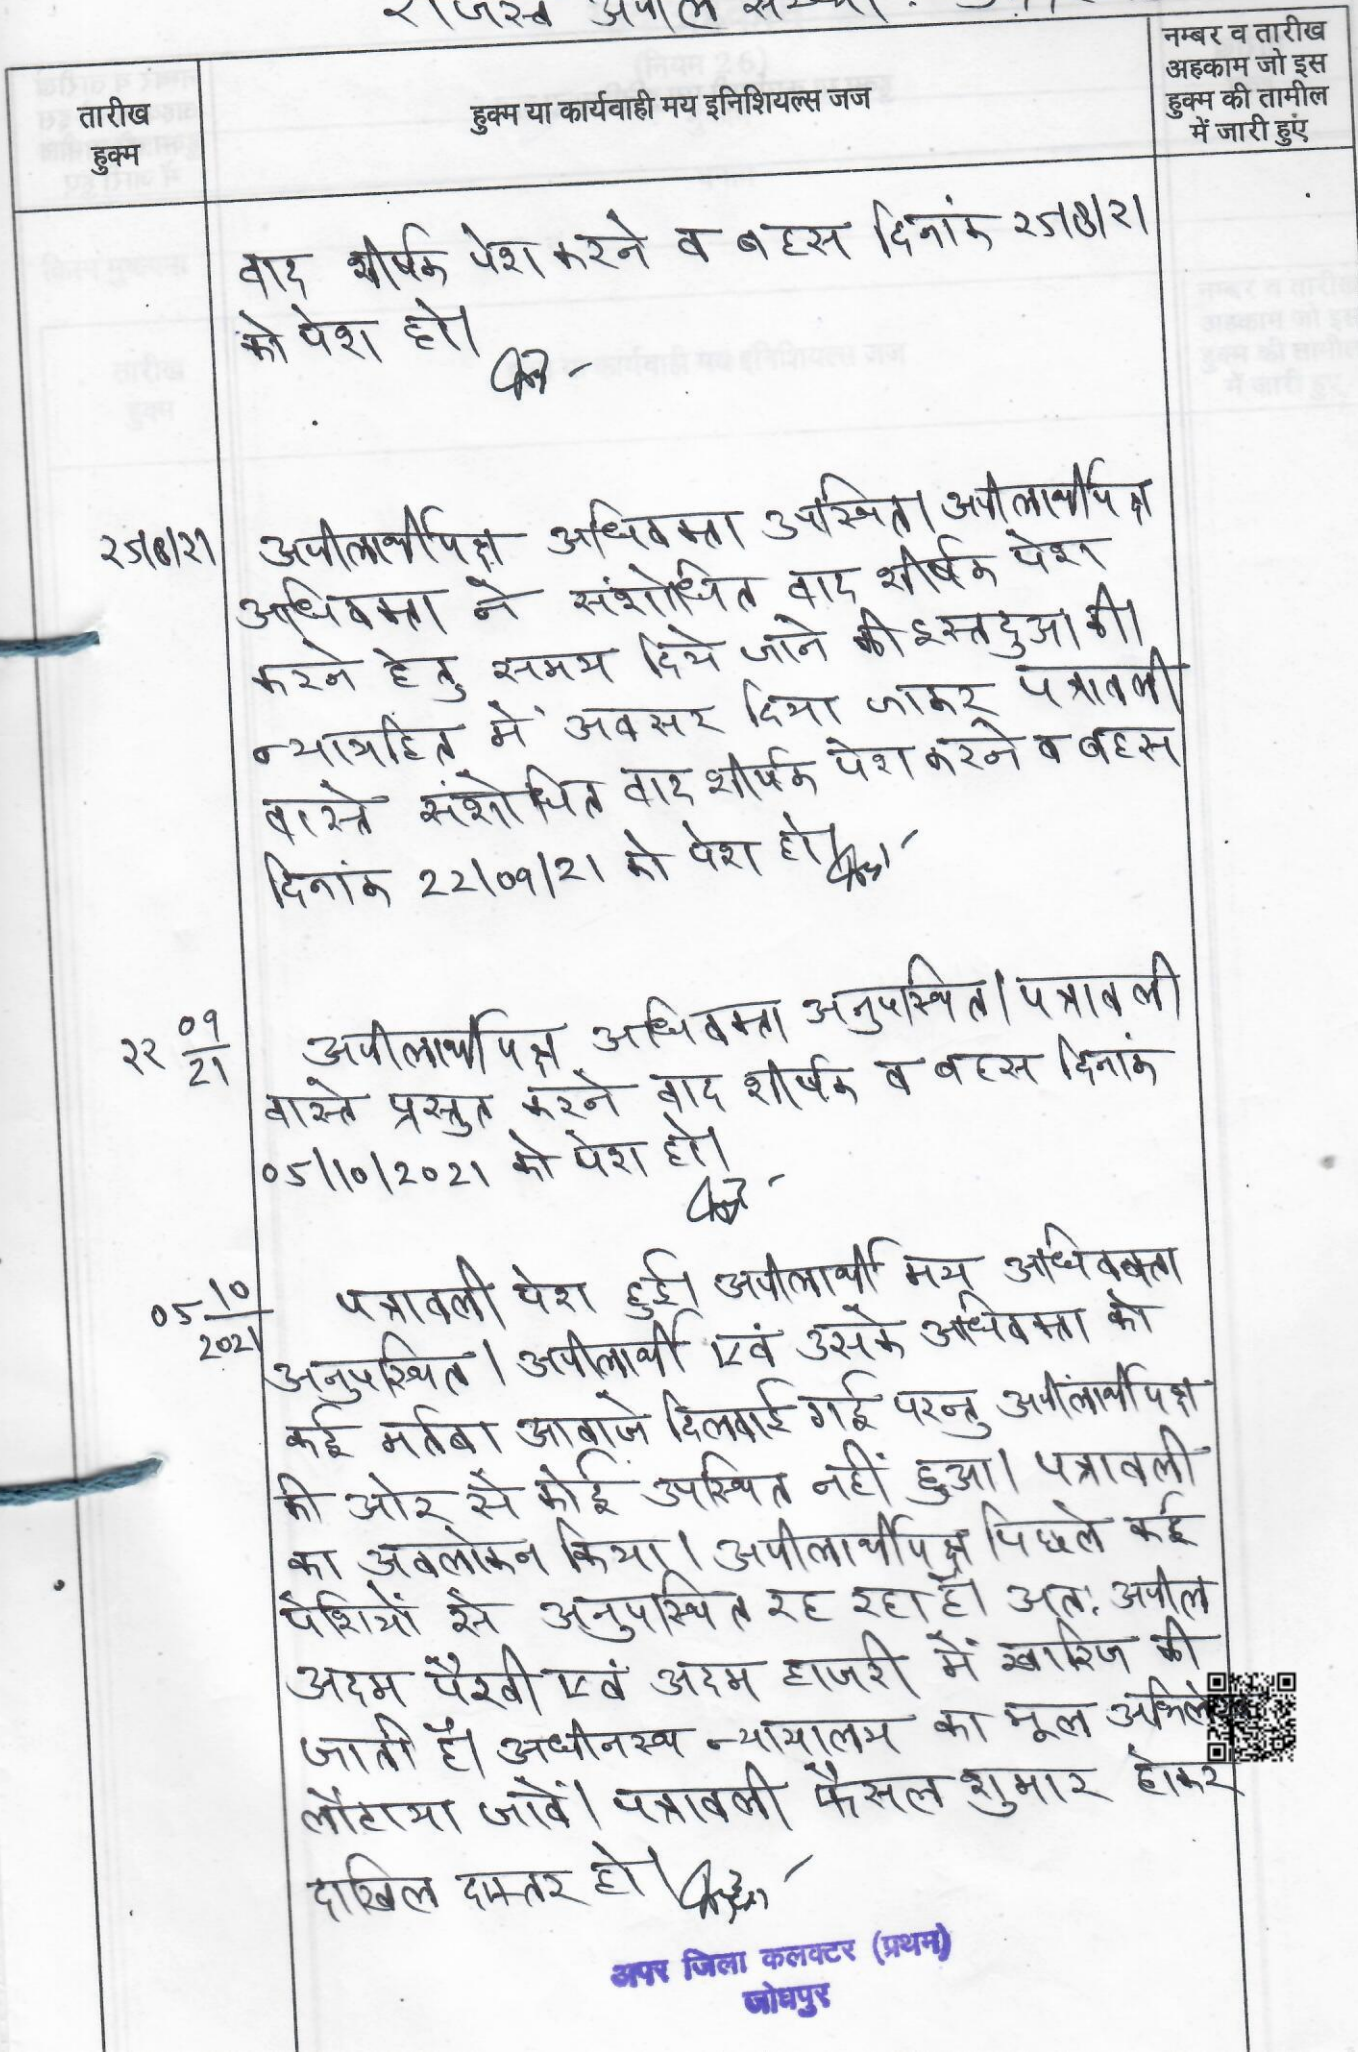 राजस्व अपील संख्या
तारीख
हुक्म
हुक्म या कार्यवाही मय इनिशियल्स जज
नम्बर व तारीख
अहकाम जो इस
हुक्म की तामील
में जारी हुए
वाद शीर्षक पेश करने व बहस दिनांक 25/8/21
को पेश हो।
25/8/21
अपीलार्थीपक्ष अधिवक्ता उपस्थित। अपीलार्थीपक्ष
अधिवक्ता ने संशोधित वाद शीर्षक पेश
करने हेतु समय दिये जाने की इस्तदुआ की।
न्यायहित में अवसर दिया जाकर पत्रावली
वास्ते संशोधित वाद शीर्षक पेश करने व बहस
दिनांक 22/09/21 को पेश हो।
22 09/21
अपीलार्थीपक्ष अधिवक्ता अनुपस्थित। पत्रावली
वास्ते प्रस्तुत करने वाद शीर्षक व बहस दिनांक
05/10/2021 को पेश हो।
05 10/2021
पत्रावली पेश हुई। अपीलार्थी मय अधिवक्ता
अनुपस्थित। अपीलार्थी एवं उसके अधिवक्ता को
कई मर्तबा आवाजे दिलवाई गई परन्तु अपीलार्थीपक्ष
की ओर से कोई उपस्थित नहीं हुआ। पत्रावली
का अवलोकन किया। अपीलार्थीपक्ष पिछले कई
पेशियों से अनुपस्थित रह रहा है। अतः अपील
अदम पैरवी एवं अदम हाजरी में खारिज की
जाती है। अधीनस्थ न्यायालय का मूल अभिलेख
लौटाया जावें। पत्रावली फैसल शुमार होकर
दाखिल दफ्तर हो।
अपर जिला कलक्टर (प्रथम)
जोधपुर